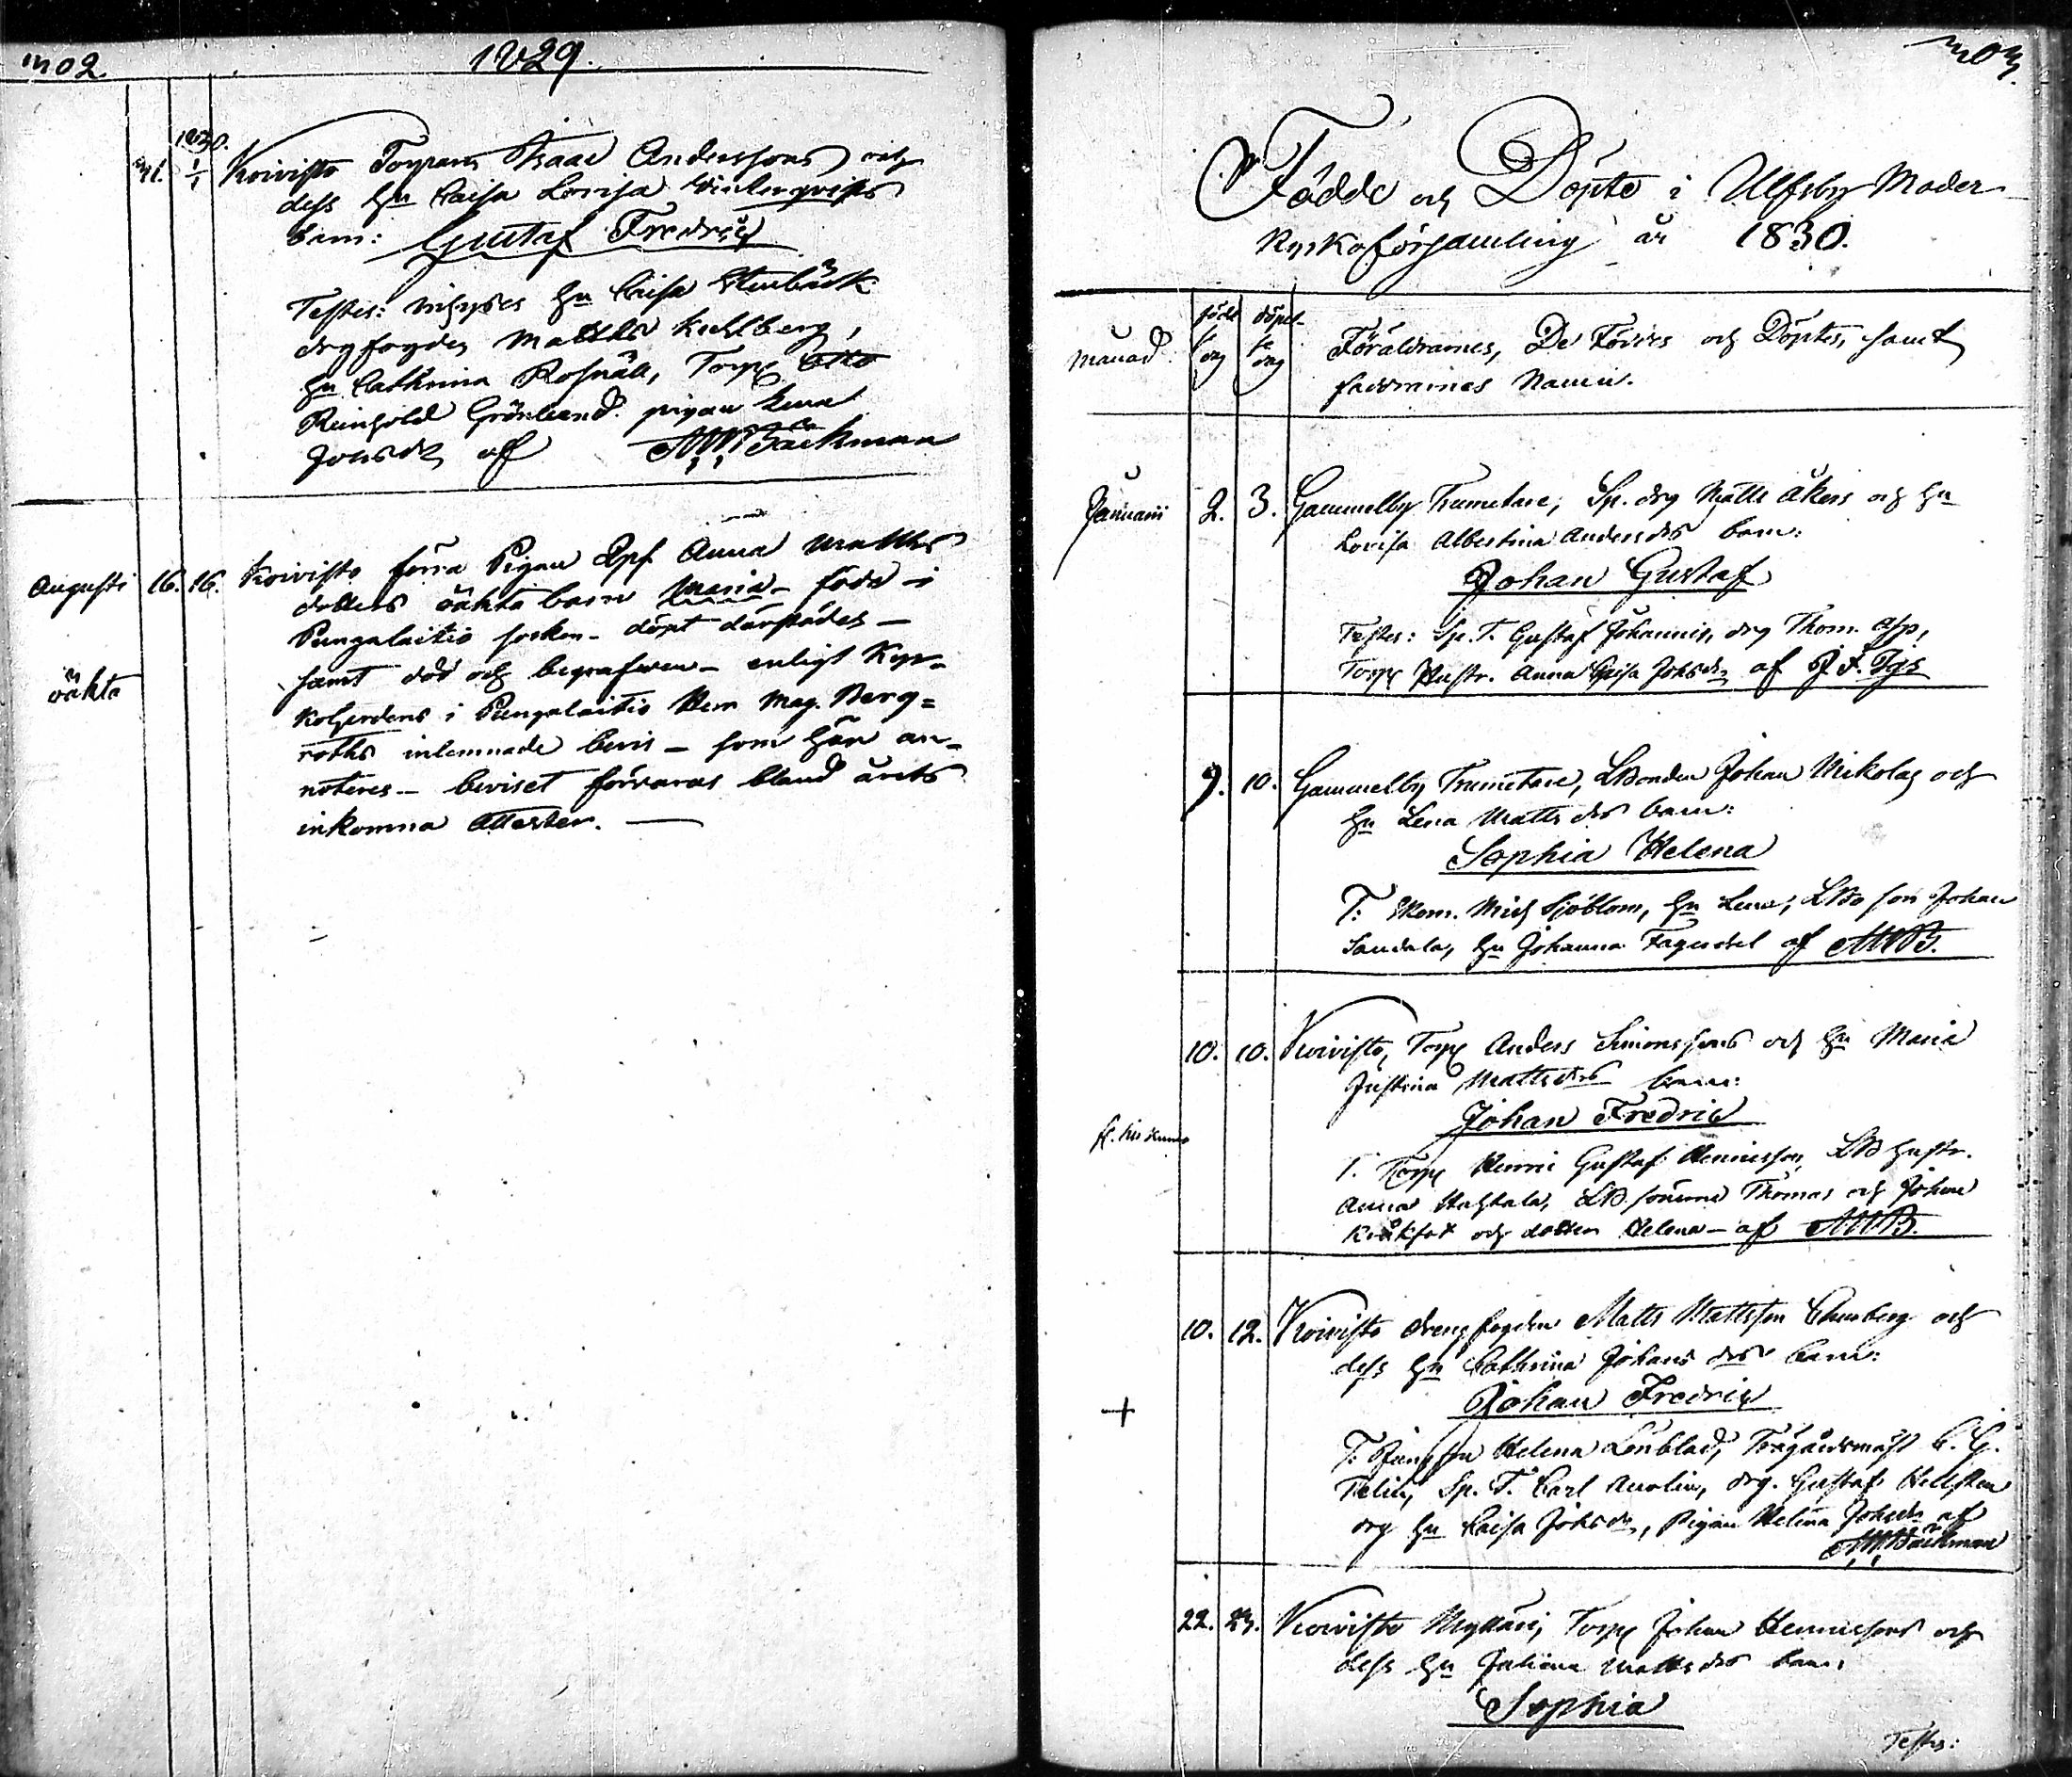 302.
1829.
1830.
31. 1/1 Koivisto Torparn Isaac Anderssons och
dess Hu Caisa Lovisa Winterqvists
barn: Gustaf Fredric
Testes: Hu Caisa Stenbäck
drgfogden Matths Kihlberg,
Hu Cathrina Rosnäll, Torp. Otto
Reinhold Grönlund. pigan Lena
Johsdr af MWBäckman
Augusti 16. 16. Koivisto förra Pigan Anna Matths
dotters oäkta barn Maria - född i
Pungalaitio socken - döpt därstädes -
oäkta samt död och begrafwen - enligt Kyr-
koherdens i Pungalaitio Herr Mag. Berg=
roths inlemnade bevis - som här an-
noteres - beviset förvaras bland årets
inkomna attester. -
303.
Födde och Döpte i Ulfsby Moder-
kyrkoförsamling år 1830.
Månad. född dag döpelse dag Föräldrarnes, De Föddes och Döptes, samt
faddrarnes Namn.
Januarii 2. 3. Gammelby Trumetare, Sp. drg Matts Åkers och Hu
Lovisa Albertina Andersdrs barn:
Johan Gustaf
Testes: Sp. T. Gustaf Johannis, drg Thom. Asp,
Torp Hustr. Anna Caisa Johsdr af J. F. Tgs
9. 10. Gammelby Trumetare, LBonden Johan Nikolas och
Hu Lena Mattsdrs barn:
Sophia Helena
T: Skom. Mich Sjöblom, Hu Lena, LBo son Johan
Sandala, Hu Johanna Fagerdel af MWB.
10. 10. Koivisto, Torp Anders Simonssons och Hu Maria
Justina Mattsdrs barn:
Johan Fredric
T. Torp Henric Gustaf Henricsson, LB hustr.
Anna LB sönerne Thomas och Johan
och dottren Helena - af MWB.
10. 12. Koivisto drengfogden Matts Mattsson och
dess Hu Cathrina Johans drs barn:
+ Johan Fredric
T: Helena Lönblad, Trägårdsmäst C. G.
Felin, Sp. T. Carl drg. Gustaf Hellsten
drg Hu Caisa Johsdr, Pigan Helena Johsdr af
MWBäckman
22. 23. Koivisto Myllari, Torp Johan Henricssons och
dess Hu Juliana Mattsdrs barn:
Sophia
Testes: